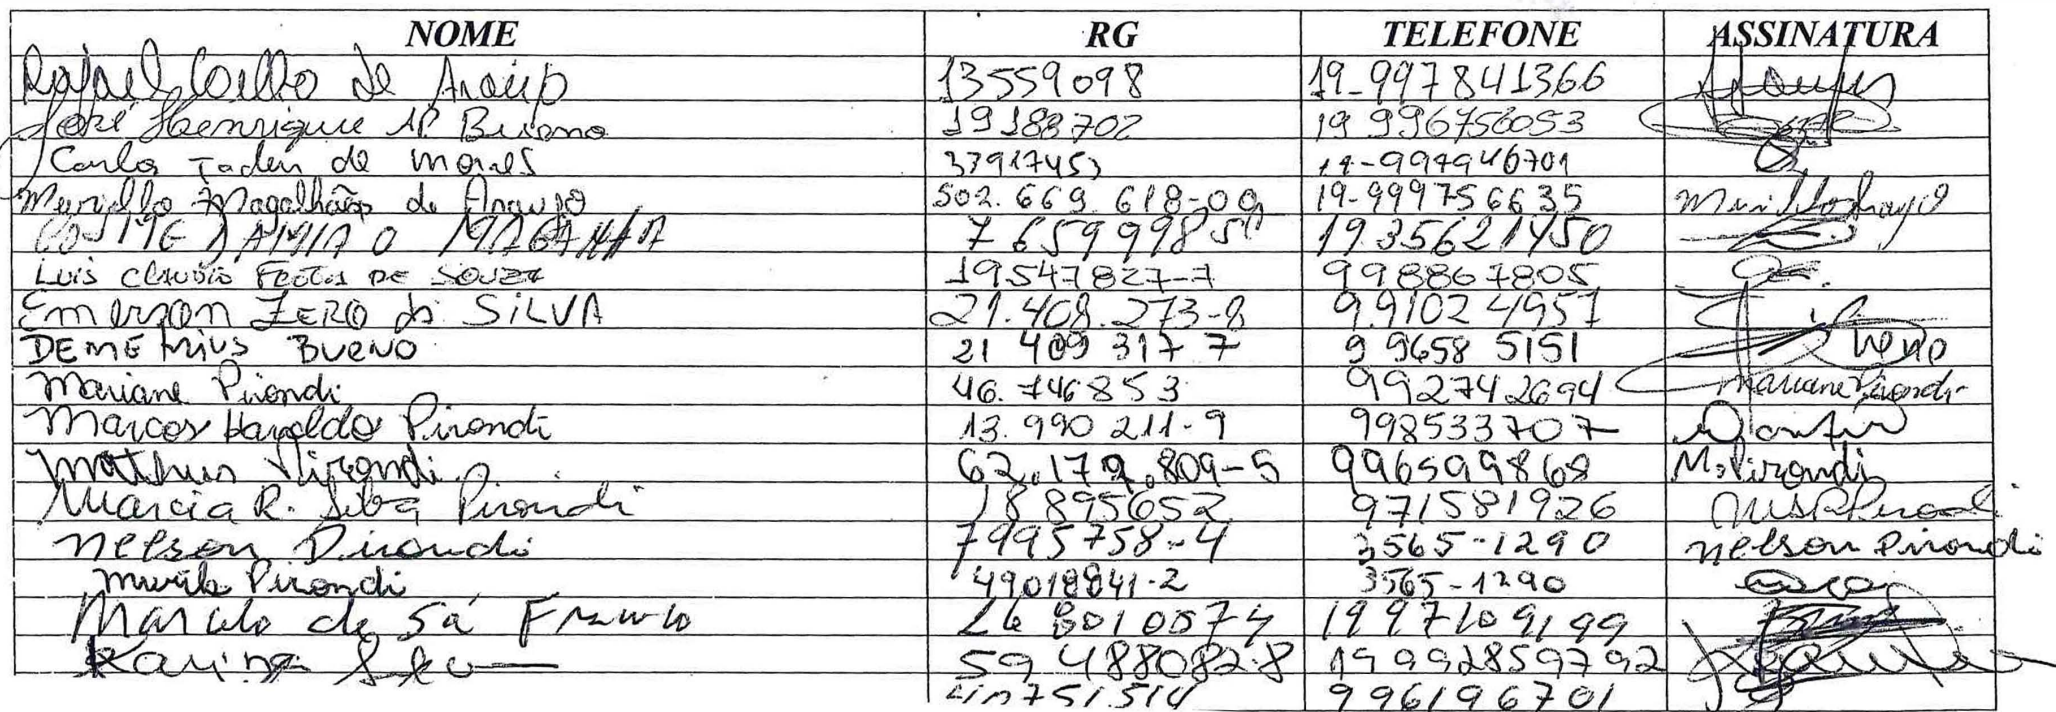 NOME RG TELEFONE ASSINATURA
Rafael Coelho de Araújo 13559098 19-997841366
José Henrique Ap. Bueno 19188702 19 996756053
Carlos Tadeu de Moraes 33917453 19-997946701
Murillo Magalhães de Araujo 502.669.618-00 19-999756635 Murillo Araujo
COSME DAMIAO MAGANHA 7 659 998 19.35621450
LUIS CLAUDIO DE SOUZA 19547827-7 998867805
Emerson ZERO da SILVA 21.408.273-8 9.91024957
DEMETRIUS BUENO 21 409 317 7 9 9658 5151 Bueno
Mariane Pirondi 46.746853 992742694 Mariane Pirondi
Marcos Haroldo Pirondi 13.990 211-9 998533707
Matheus Pirondi 62.179.809-5 996599868 M. Pirondi
Marcia R. Silva Pirondi 18895652 971581926
Nelson Pirondi 7995758-4 3565-1290 Nelson Pirondi
Murilo Pirondi 49018841-2 3565-1290
Marcelo de Sá 26 8010574 19971099199
Karina 59 4880828 19992859792
751.514 996196701